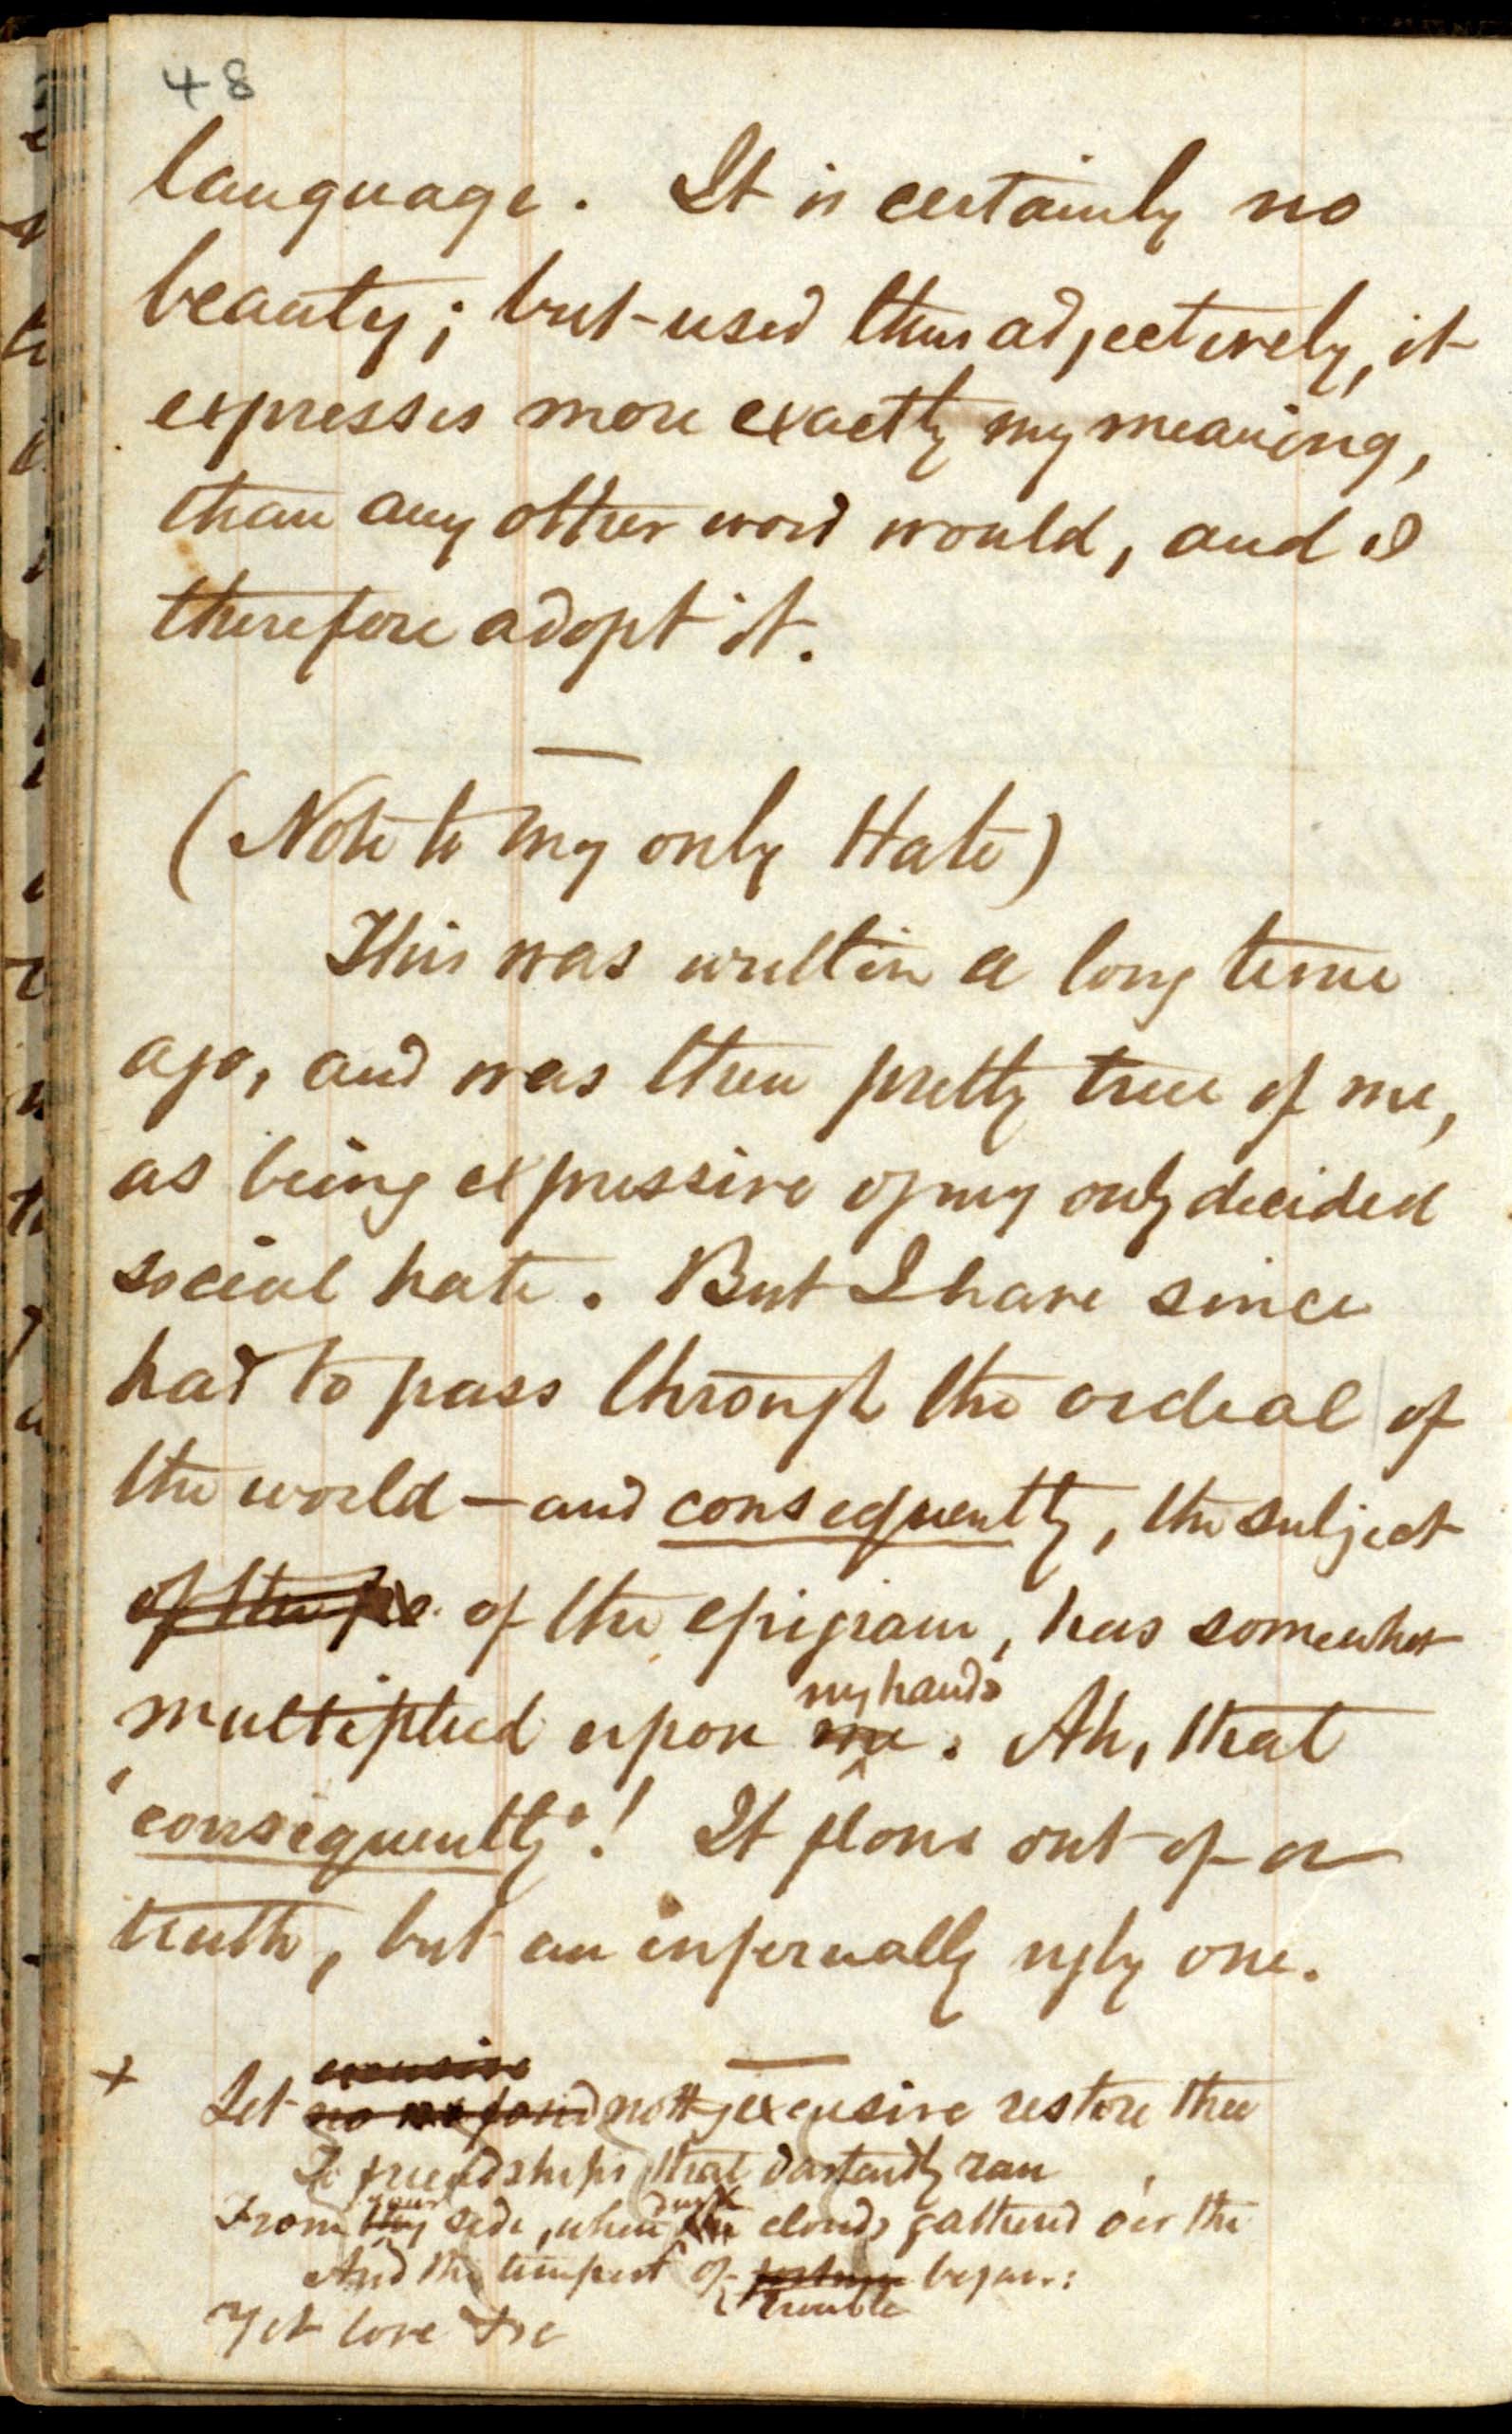 48
language. It is certainly no
beauty; but used thus adjectively, it
expresses more exactly my meaning,
than any other word would, and I
therefore adopt it.
—
(Note to my only Hate)
This was written a long time
ago, and was then pretty true of me,
as being expressive of my only decided
social hate. But I have since
had to pass through the ordeal of
the world — and consequently, the subject
of the of the epigram, has somewhat
my hands
multiplied upon me. Ah, that
'consequently'! It flows out of a
truth, but an infernally ugly one.
—
excusive
+ Let no fond not excusive restore thee
To friendships that dastardly ran
your dark
From thy side, when the clouds gathered o'er thee
And the tempest of fortune began:
trouble
Yet love &c